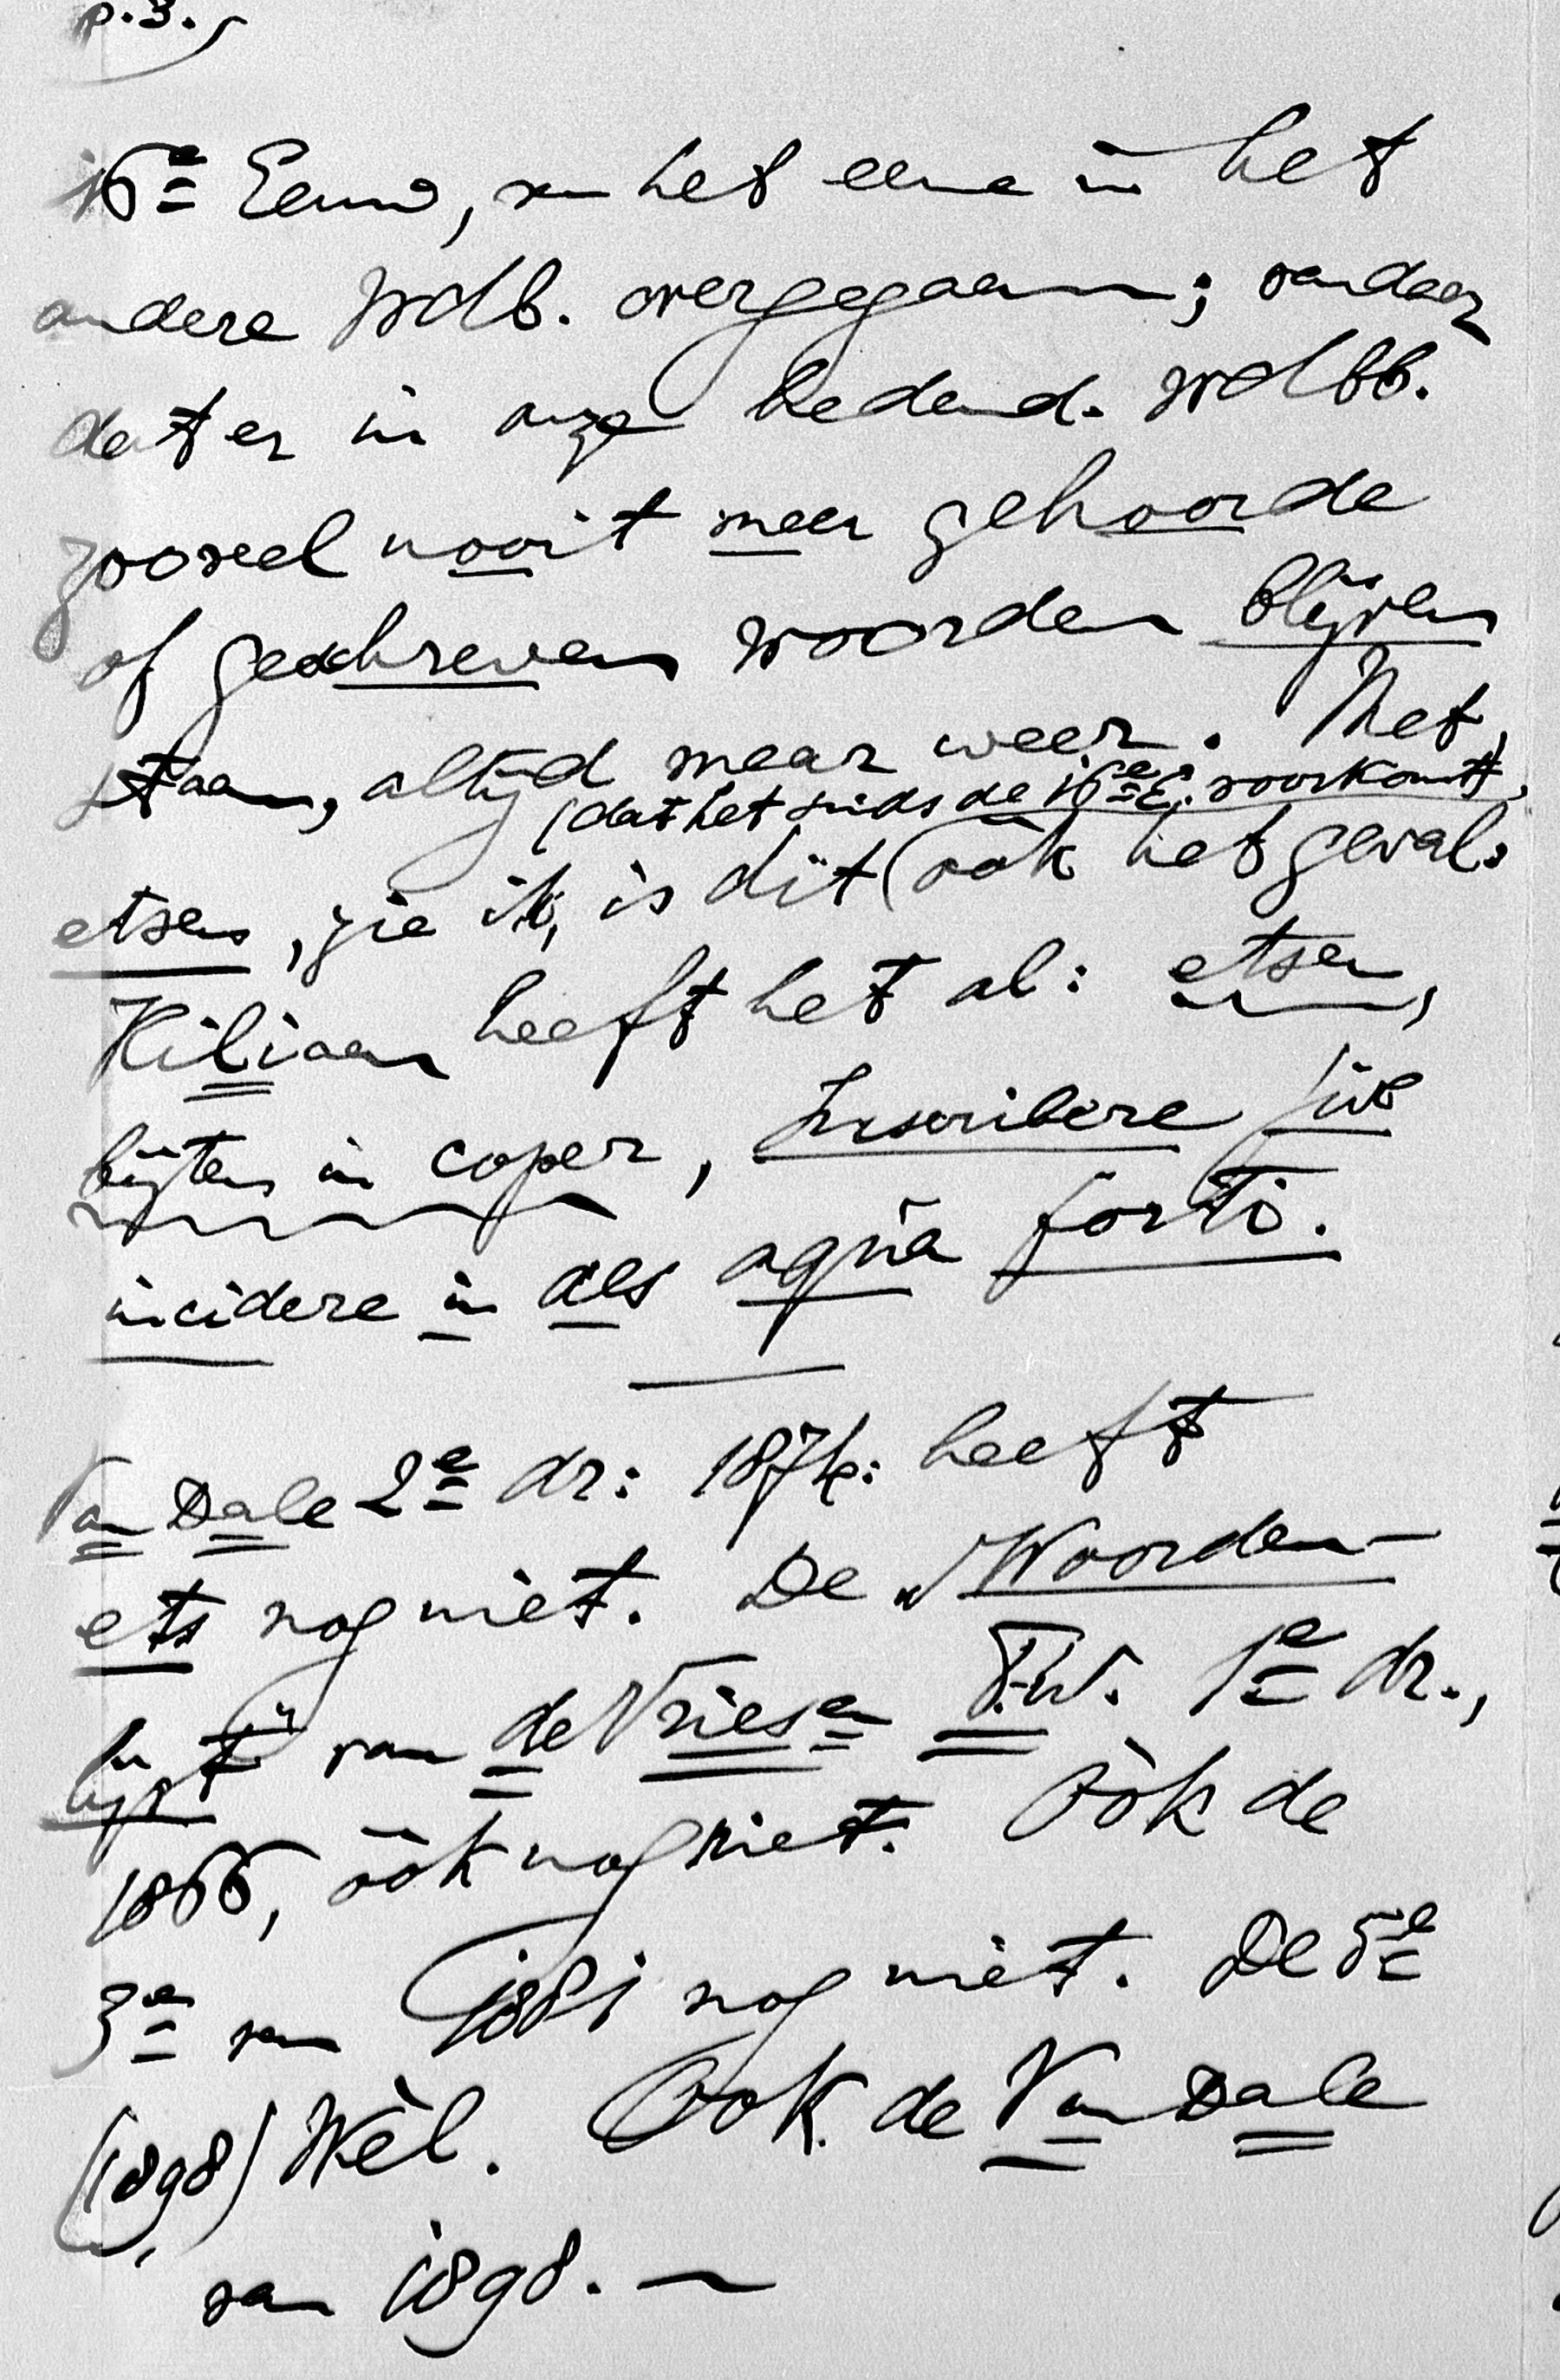 p.3.
16e Eeuw, van het eene in het
andere Wdb. overgegaan; vandaar
dat er in onze hedend. Wdbb.
zooveel nooit meer gehoorde
of geschreven woorden blijven
staan, altijd maar weer. Met
(dat het sinds de 16e E. voorkomt)
etsen, zie ik, is dit ook het geval:
Kiliaan heeft het al: etsen,
bijten in coper, Inscribere sive
incidere in aes aqua forti.
Van Dale 2e dr: 1874: heeft
ets nog niet. De „Woorden-
lijst" van de Vries en T.W. 1e dr.,
1866, óók nog niet. Óók de
3e van 1881 nog niet. De 5e
(1898) Wèl. Ook de Van Dale
van 1898. —